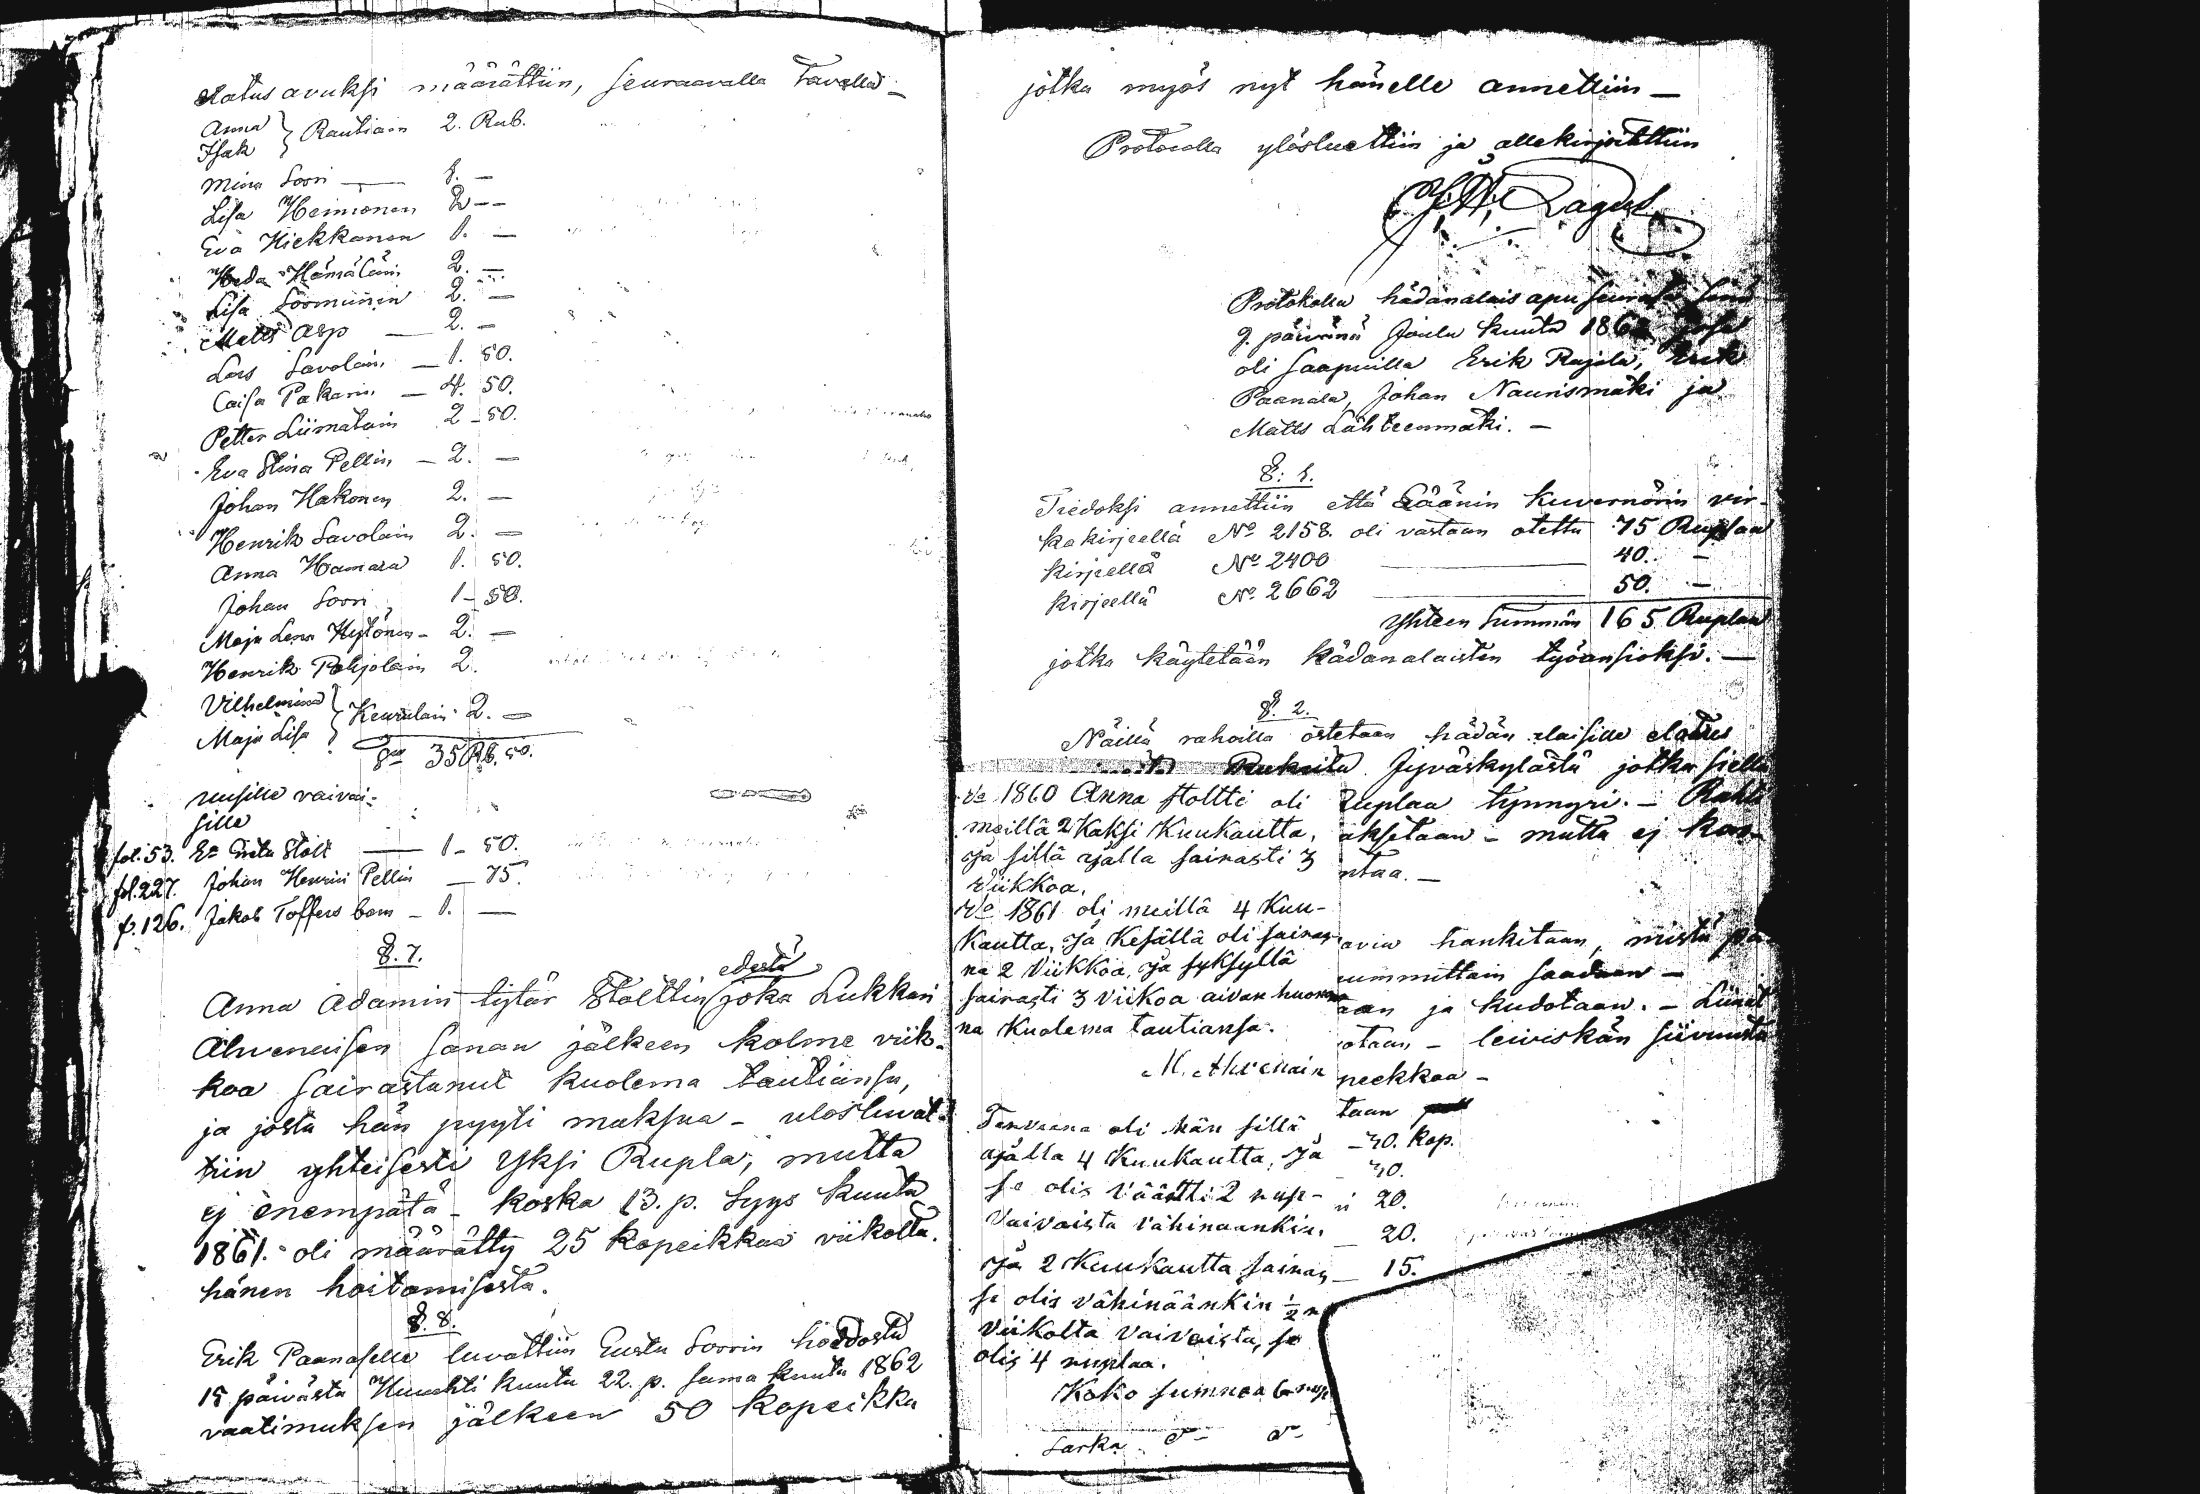 elatus avuksi määrättiin, seuraavalla tavalla –
Anna } Rautiain 2. Rub.
Isak
Mina Soori — 1. –
Lisa Heimonen 2 – –
Eva Hiekkanen 1. –
Heda Hämäläin 2. –
Lisa Sorminen 2. –
Matts Asp — 2. –
Lars Savolain. – 1. 50.
Caisa Pakarin. – 4. 50.
Petter Liimatain 2 – 50.
Eva Stina Pellin – 2. –
Johan Hakonen 2. –
Henrik Savolain 2. –
Anna Hamara 1. 50.
Johan Soori 1 – 50.
Maja Lena Hytönen – 2. –
Henrik Pohjolain 2.
Vilhelmina } Keurulain 2. –
Maja Lisa
35 Rb. 50.
uusille vaivai-
sille
fol. 53. Greta Stolt — 1 – 50.
fol. 227. Johan Henrici Pellin — 75.
f. 126. Jakob Toffers barn – 1. —
§. 7.
edestä
Anna Adamin tytär Stolttin joka Lukkari
Ahvenaisen sanan jälkeen kolme viik-
koa sairastanut kuolema tautiansa,
ja josta hän pyyti maksua – ulosluvat-
tiin yhteisesti yksi Rupla, mutta
ej enempätä – koska 13. p. Syys kuuta
1861. oli määrätty 25 kopeikkaa viikolta.
hänen hoitamisesta.
§. 8.
Erik Paanaselle luvattiin Gusta Soorin hoidosta
15 päivästä Huuhti kuuta 22. p. sama kuuta 1862
vaatimuksen jälkeen 50 kopeikka
jotka myös nyt hänelle annettiin —
Protocolla ylösluettiin ja allekirjoitettiin
Lagus
Protokolla hädänalais apu
9. päivänä Joulu kuuta 1862
oli saapuilla Erik Rajala, Erik
Paanala, Johan Naurismäki ja
Matts Lähteenmäki. –
§. 1.
Tiedoksi annettiin että Läänin kuvernörin vir-
kakirjeellä No 2158. oli vastaan otettu 75 Ruplaa
kirjeellä No 2400 — 40. –
kirjeellä No 2662 — 50. –
yhteen summan 165 Ruplaa
jotka käytetään hädänalaisten työansioksi. —
§. 2.
Näillä rahoilla ostetaan hädän alaisille elatus
Rukiita Jyväskylästä jotka siellä
va 1860 Anna Stoltti oli
meillä 2 Kaksi Kuukautta,
Ja sillä ajalla sairasti 3
viikkoa.
va 1861 oli meillä 4 Kuu-
kautta, Ja Kesällä oli sairas-
na 2 Viikkoa, Ja syksyllä
sairasti 3 viikoa aivan huono-
na Kuolema tautiansa.
M. Ahvenain
Terveenä oli hän sillä
ajalla 4 Kuukautta, Ja
se olis väärtti 2 rup-
Vaivaista vähinäänkin.
Ja 2 Kuukautta sairas
se olis vähinäänkin ½ r
viikolta vaivaista, se
olis 4 ruplaa.
Koko summa 6 rup
Sarka
ruplaa tynnyri. –
aksetaan – mutta ej
ntaa. –
hankitaan, mistä
summittain saadaan –
aan ja kudotaan. –
otaan – leiviskän
peekkaa –
taan
– 40. kop.
40.
20.
— 20.
— 15.